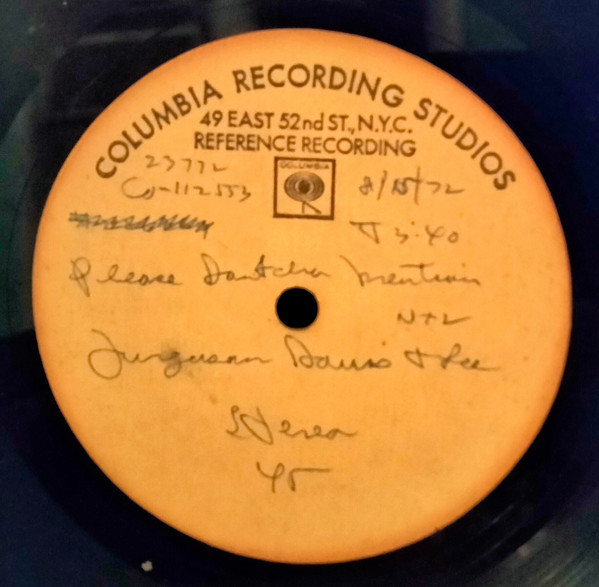 COLUMBIA RECORDING STUDIOS
49 EAST 52nd ST., N.Y.C.
REFERENCE RECORDING
COLUMBIA
23772
CO-112553
8/15/72
T 3:40
Please Dontcha Mention
Furguson Davis & Lee
Stereo
45